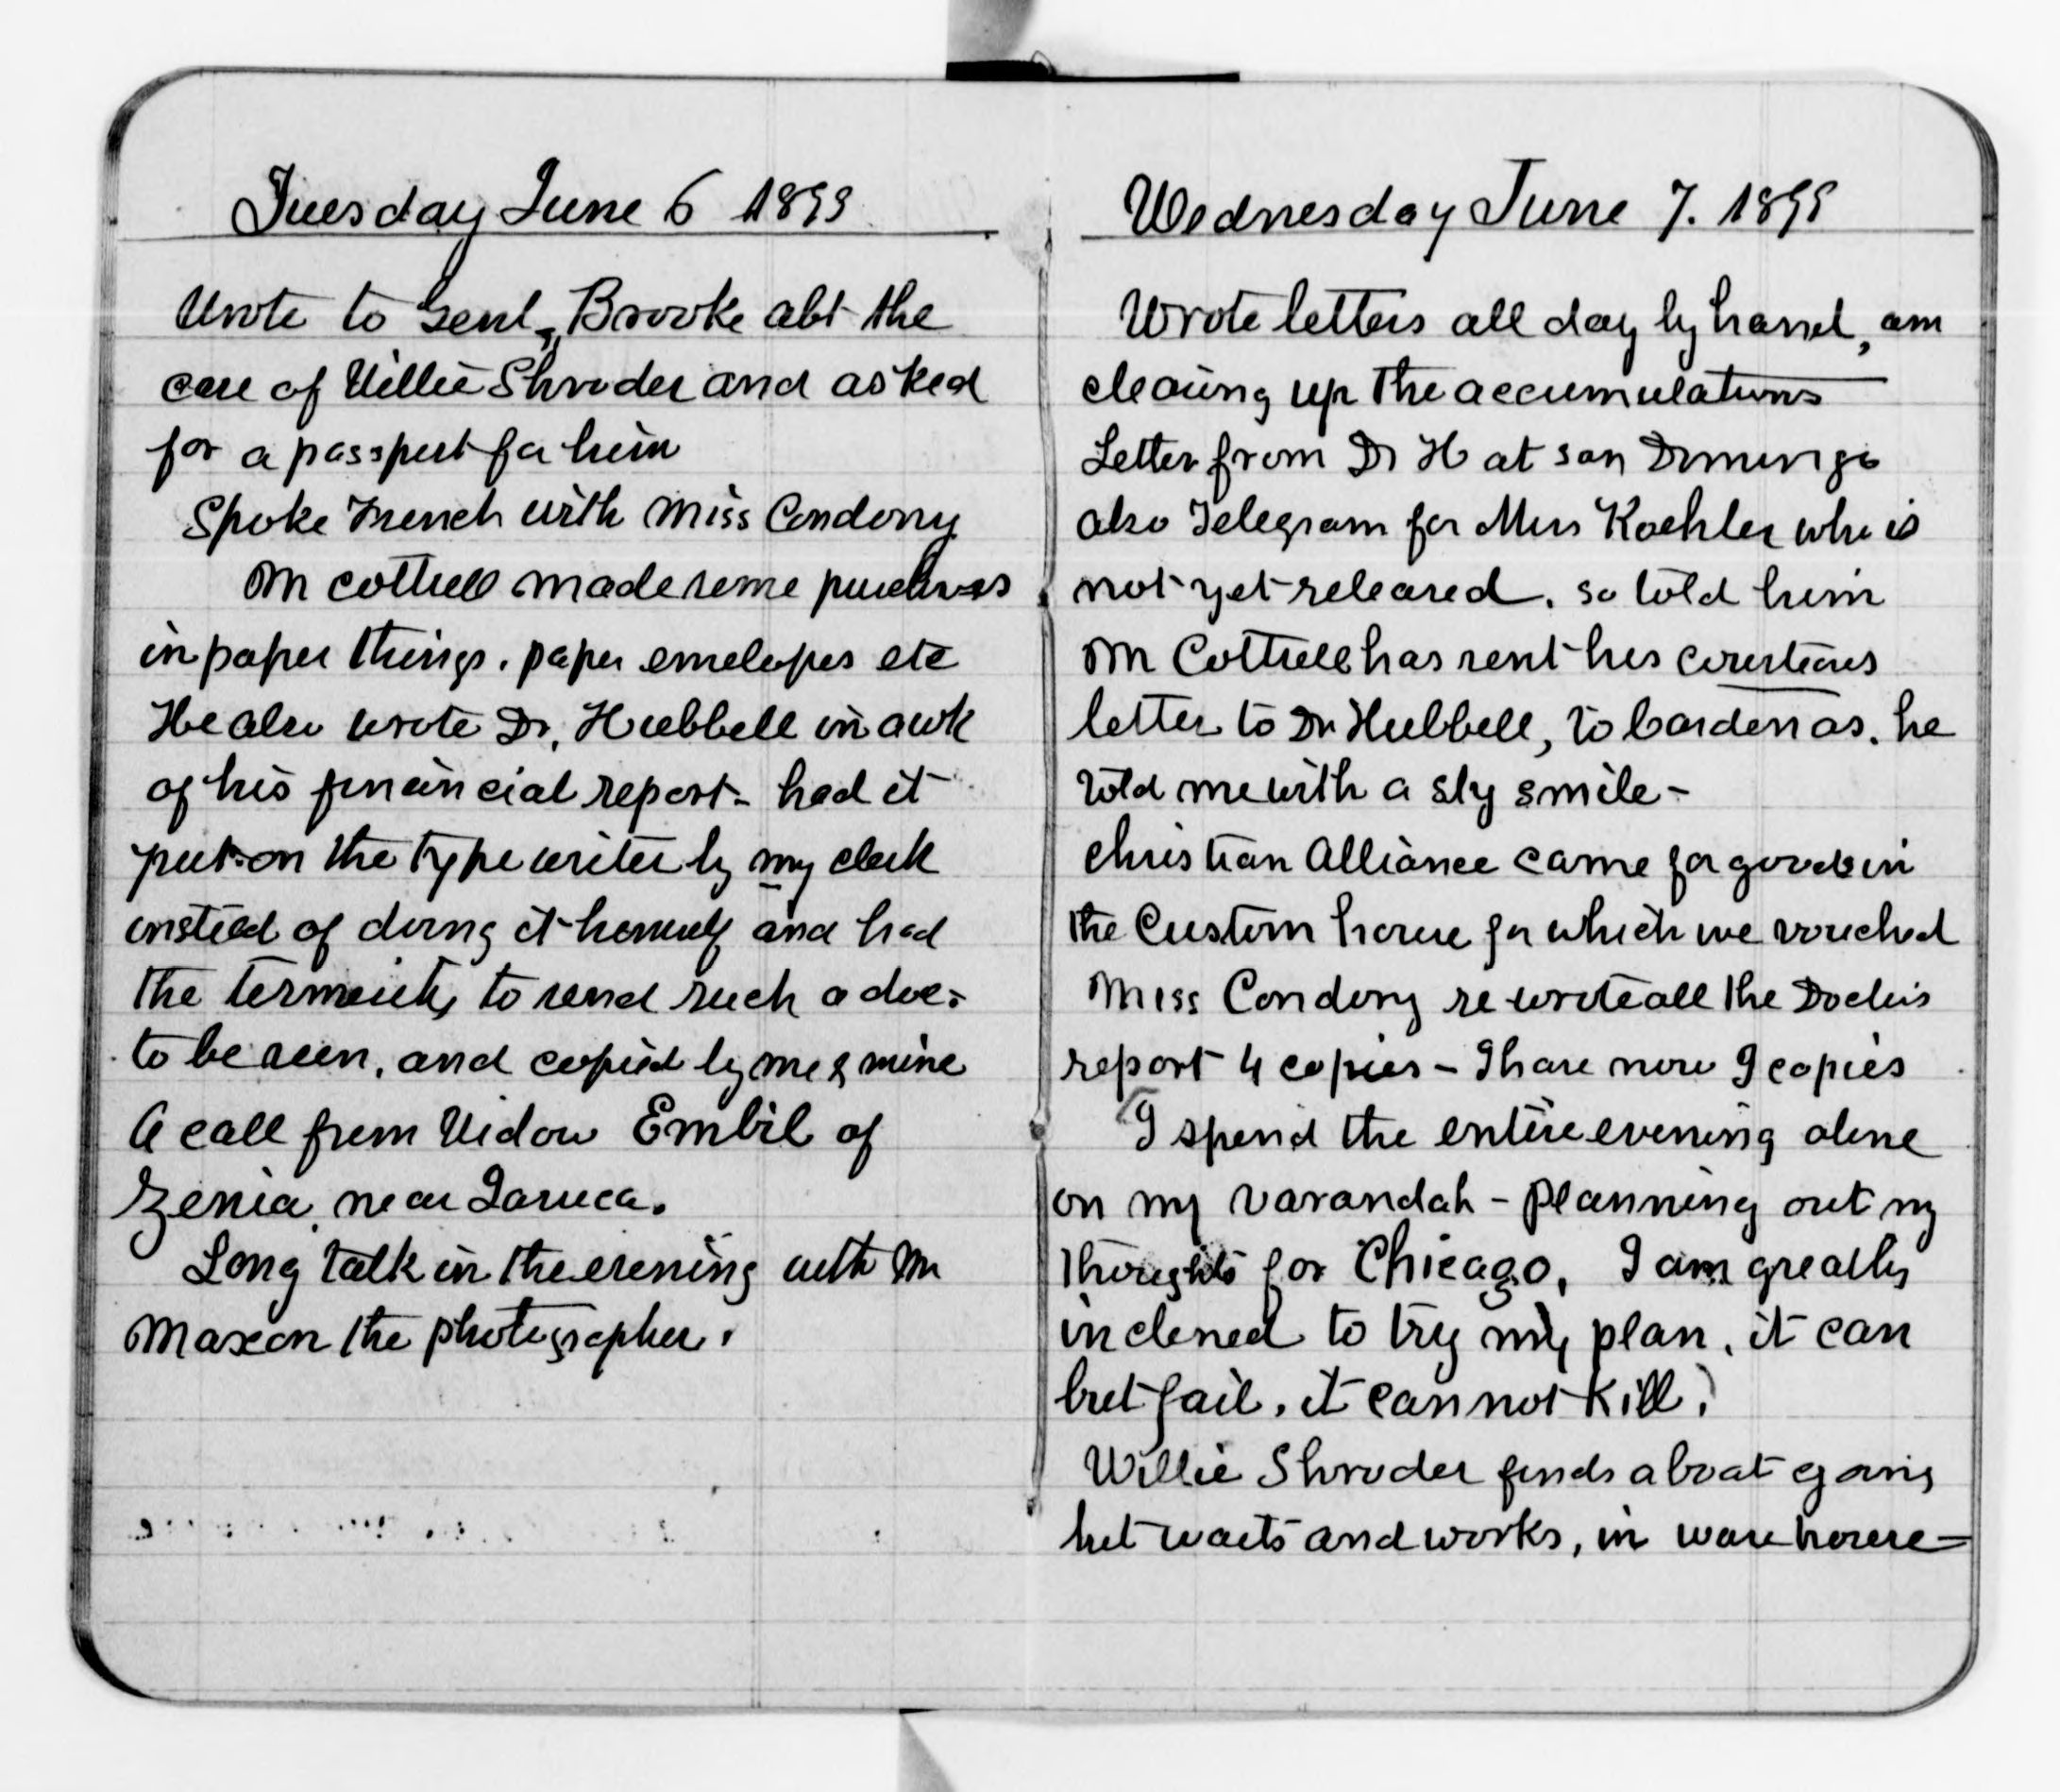 Tuesday June 6 1899
Wrote to Genl, Brooke abt the
case of Willie Shroder and asked
for a passport for him
Spoke French with Miss Condony
Mr Cottrell made some purchases
in paper things. paper envelopes etc
He also wrote Dr, Hubbell in awk
of his financial report - had it
put on the typewriter by my clerk
instead of doing it himself and had
the temerity to send such a doc-
to be seen, and copied by me & mine
A call from Widow Embil of
Zenia, near Jaruca.
Long talk in the evening with Mr
Maxon the photographer.
Wednesday June 7. 1899
Wrote letters all day by hand, am
clearing up the accumulations
Letter from Dr H at San Domingo
also Telegram for Mrs Koehler who is
not yet released. so told him
Mr Cottrell has sent his courteous
letter to Dr Hubbell, to Cardenas. he
told me with a sly smile -
Christian Alliance came for goods in
the Custom house for which we vouched
Miss Condony re wrote all the Doctors
report 4 copies - I have now 9 copies
I spend the entire evening alone
on my varandah - planning out my
thoughts for Chicago, I am greatly
inclined to try my plan, it can
but fail, it cannot kill.
Willie Shroder finds a boat going
but waits and works, in warehouse -